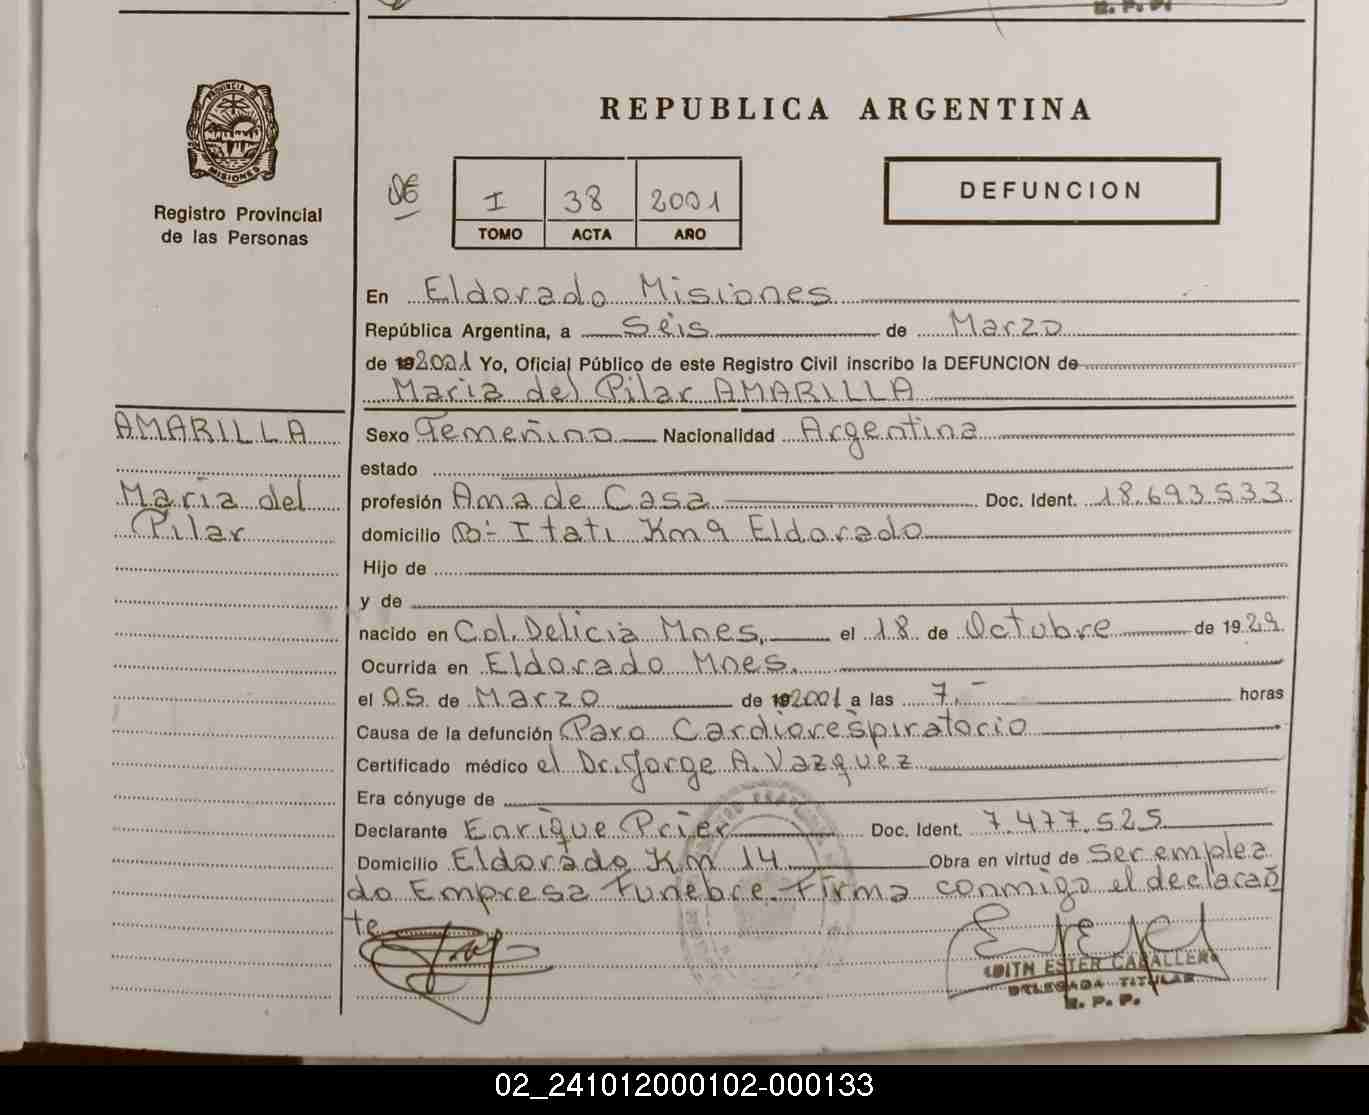 R. P. P.
PROVINCIA DE
MISIONES
Registro Provincial
de las Personas
REPUBLICA ARGENTINA
I 38 2001
TOMO ACTA AÑO
DEFUNCION
En Eldorado Misiones
República Argentina, a Séis de Marzo
de 192001 Yo, Oficial Público de este Registro Civil inscribo la DEFUNCION de
Maria del Pilar AMARILLA
AMARILLA
Maria del
Pilar
Sexo Femenino Nacionalidad Argentina
estado
profesión Ama de Casa Doc. Ident. 18.693.533
domicilio Bº Itati Km 9 Eldorado
Hijo de
y de
nacido en Col. Delicia Mnes, el 18 de Octubre de 1929
Ocurrida en Eldorado Mnes.
el 05 de Marzo de 192001 a las 7.- horas
Causa de la defunción Paro Cardiorespiratorio
Certificado médico el Dr. Jorge A. Vazquez
Era cónyuge de
Declarante Enrique Prier Doc. Ident. 7.477.525
Domicilio Eldorado Km 14 Obra en virtud de Ser emplea
do Empresa Funebre. Firma conmigo el declaran
te
EDITH ESTER CABALLERO
DELEGADA TITULAR
R. P. P.
02_241012000102-000133